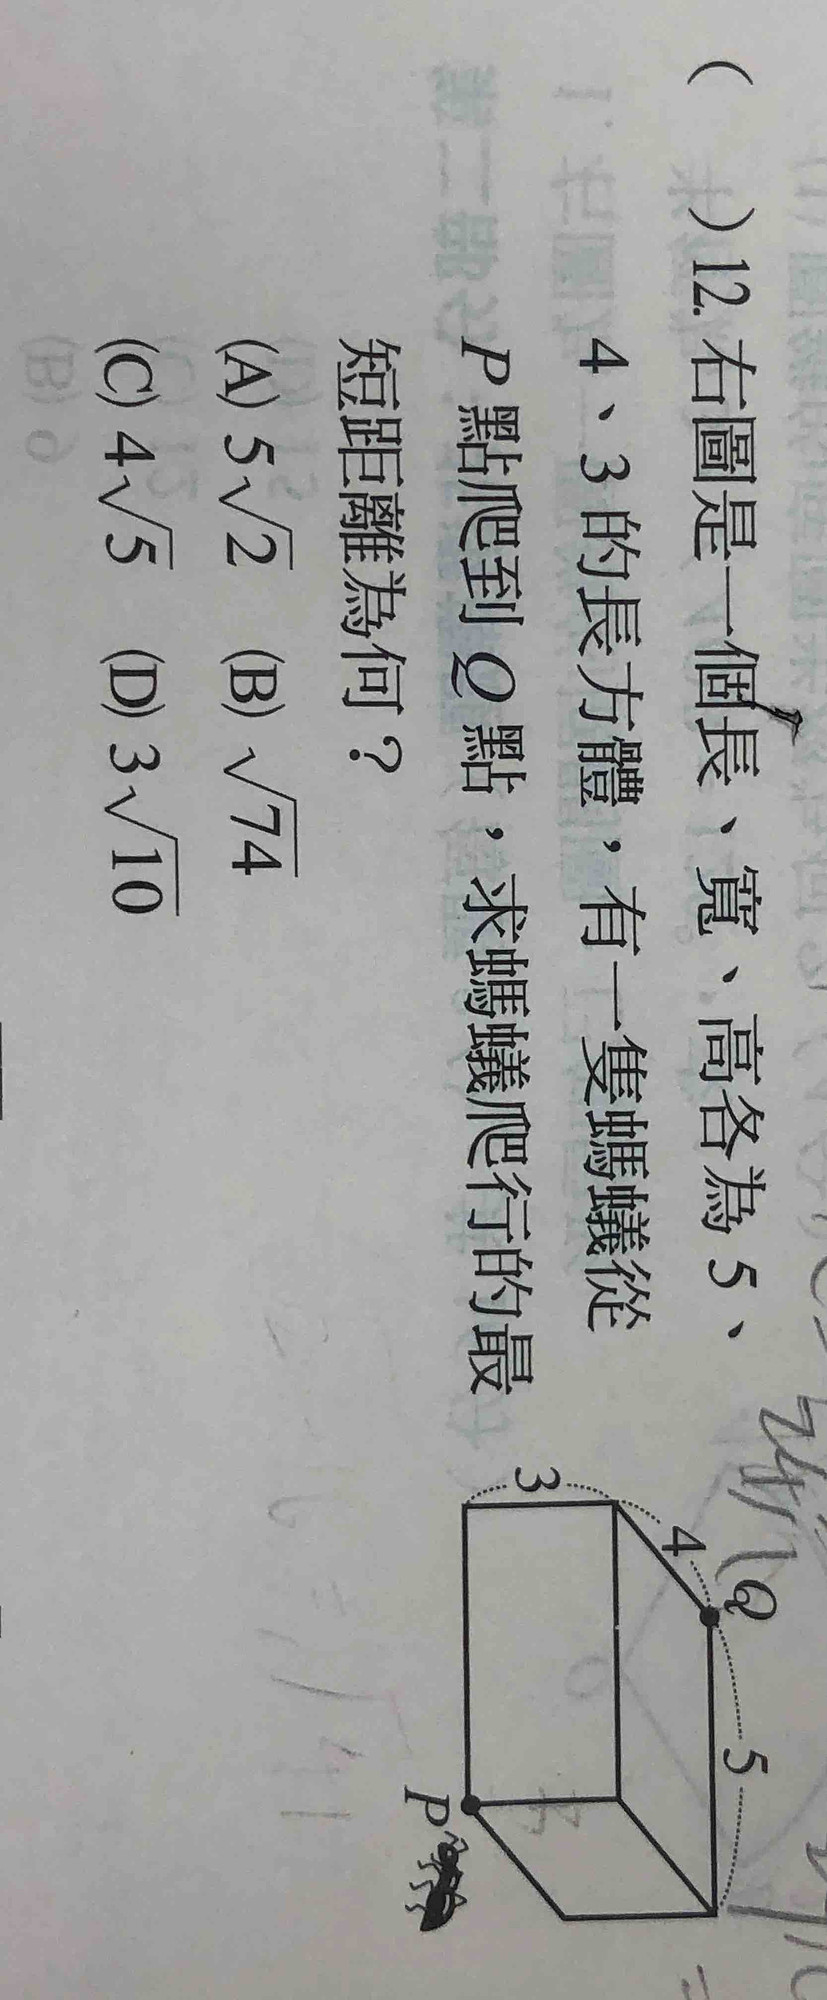 ( )12. 右圖是一個長、寬、高各為 5、
4、3 的長方體，有一隻螞蟻從
P 點爬到 Q 點，求螞蟻爬行的最
短距離為何？
(A) 5√2 (B) √74
(C) 4√5 (D) 3√10
Q
4
5
3
P